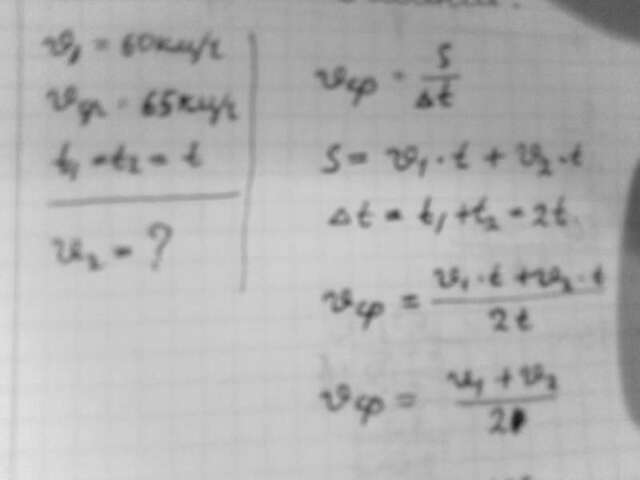 v₁ = 60 км/ч
vср = 65 км/ч
t₁ = t₂ = t
v₂ = ?
vср = S/Δt
S = v₁ · t + v₂ · t
Δt = t₁ + t₂ = 2t
vср = (v₁ · t + v₂ · t)/2t
vср = (v₁ + v₂)/2